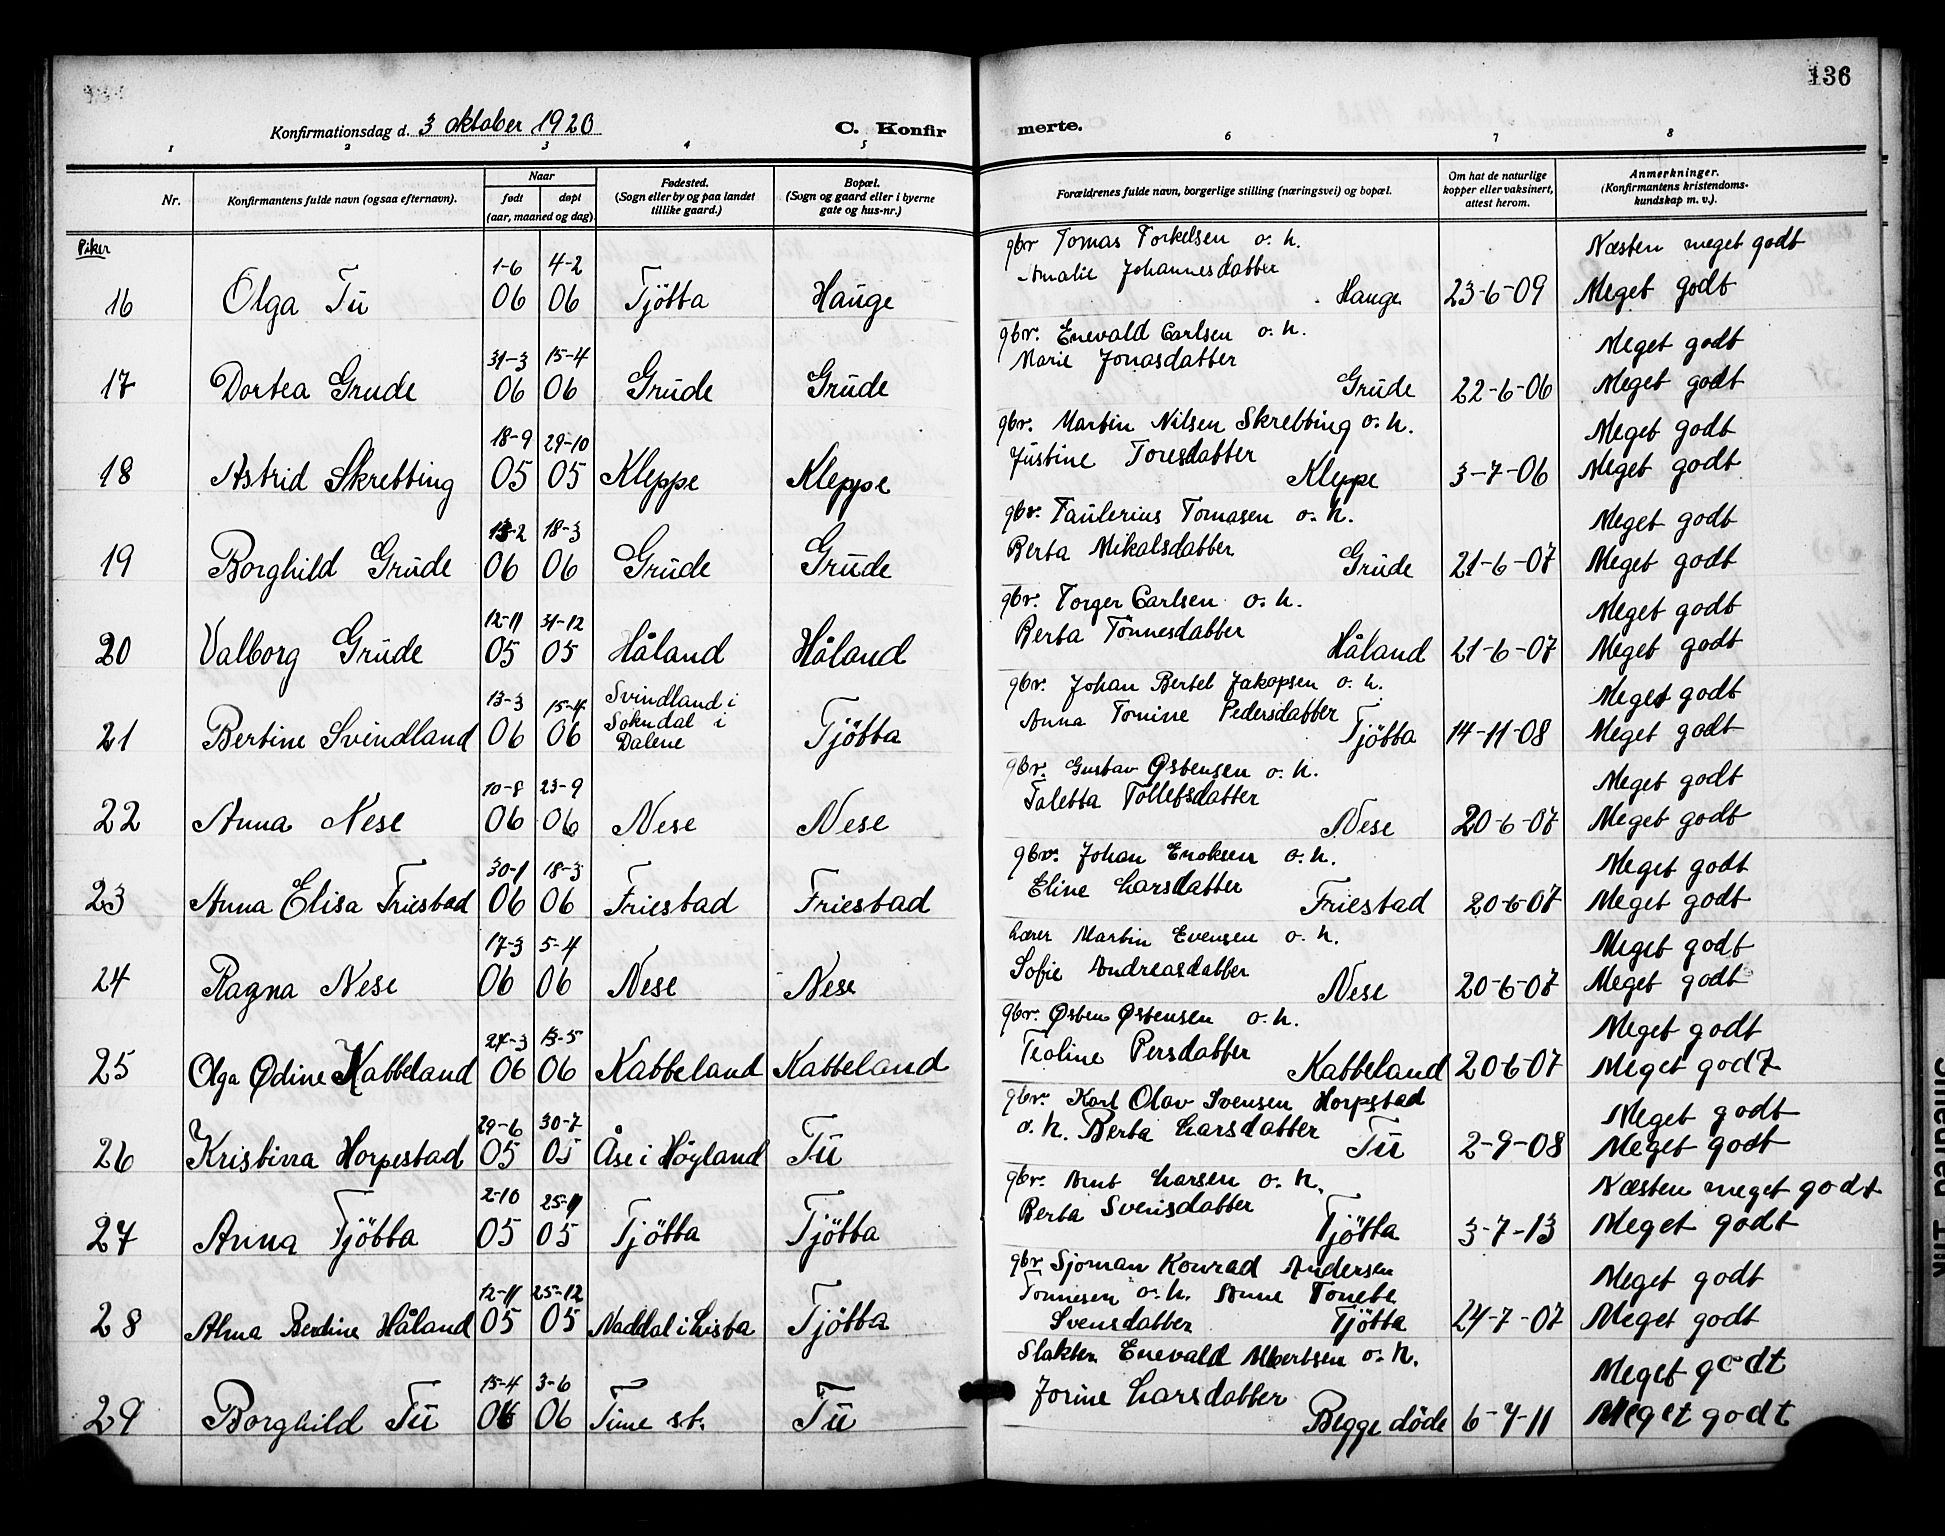 136
Konfirmationsdag d. 3 oktober 1920
C. Konfirmerte.
1 2 3 4 5 6 7 8
Nr.
Konfirmantens fulde navn (ogsaa efternavn).
Naar
født
døpt
(aar, maaned og dag)
Fødested.
(Sogn eller by og paa landet
tillike gaard.)
Bopæl.
(Sogn og gaard eller i byerne
gate og hus-nr.)
Forældrenes fulde navn, borgerlige stilling (næringsvei) og bopæl.
Om hat de naturlige
kopper eller vaksinert,
attest herom.
Anmerkninger.
(Konfirmantens kristendoms-
kundskap m. v.).
Piker
1-6 4-2 gbr Tomas Torkelsen o. h. Næsten meget godt
Amalie Johannesdatter
16 Olga Tu 06 06 Tjötta Hauge Hauge 23-6-09 Meget godt
31-3 15-4 gbr. Enevald Carlsen o. h. Meget godt
Marie Jonasdatter
17 Dortea Grude 06 06 Grude Grude Grude 22-6-06 Meget godt
18-9 29-10 gbr. Martin Nilsen Skretting o. h. Meget godt
Justine Toresdatter
18 Astrid Skretting 05 05 Kleppe Kleppe Kleppe 3-7-06 Meget godt
13-2 18-3 gbr. Taulerius Tomasen o. h. Meget godt
Berta Mikalsdatter
19 Borghild Grude 06 06 Grude Grude Grude 21-6-07 Meget godt
12-11 31-12 gbr. Torger Carlsen o. h. Meget godt
Berta Tönnesdatter
20 Valborg Grude 05 05 Håland Håland Håland 21-6-07 Meget godt
13-3 15-4 Svindland i gbr. Johan Bertel Jakopsen o. h. Meget godt
Sokndal i Anna Tomine Pedersdatter
21 Bertine Svindland 06 06 Dalene Tjötta Tjötta 14-11-08 Meget godt
10-8 23-9 gbr. Gustav Østensen o. h. Meget godt
Taletta Tollefsdatter
22 Anna Nese 06 06 Nese Nese Nese 20-6-07 Meget godt
30-1 18-3 gbr. Johan Enoksen o. h. Meget godt
Eline Larsdatter
23 Anna Elisa Friestad 06 06 Friestad Friestad Friestad 20-6-07 Meget godt
17-3 5-4 Lærer Martin Evensen o. h. Meget godt
Sofie Andreasdatter
24 Ragna Nese 06 06 Nese Nese Nese 20-6-07 Meget godt
24-3 13-5 gbr. Østen Østensen o. h. Meget godt
Teoline Persdatter
25 Olga Ødine Kabbeland 06 06 Kabbeland Kabbeland Kabbeland 20-6-07 Meget godt
29-6 30-7 gbr. Karl Olav Svensen Horpestad Meget godt
o. h. Berta Larsdatter
26 Kristinna Horpestad 05 05 Åse i Höyland Tu Tu 2-9-08 Meget godt
2-10 25-11 gbr. Arnt Larsen o. h. Næsten meget godt
Berta Svensdatter
27 Anna Tjötta 05 05 Tjötta Tjötta Tjötta 3-7-13 Meget godt
12-11 25-12 gbr. Sjoman Konrad Andersen Meget godt
Tonnesen o. h. Anne Tonete
28 Alma Bertine Håland 05 05 Naddal i Lista Tjötta Svensdatter Tjötta 24-7-07 Meget godt
15-4 3-6 Slakter Enevald Albertsen o. h. Meget godt
Jorine Larsdatter
29 Borghild Tu 06 06 Time st. Tu Begge döde 6-7-11 Meget godt